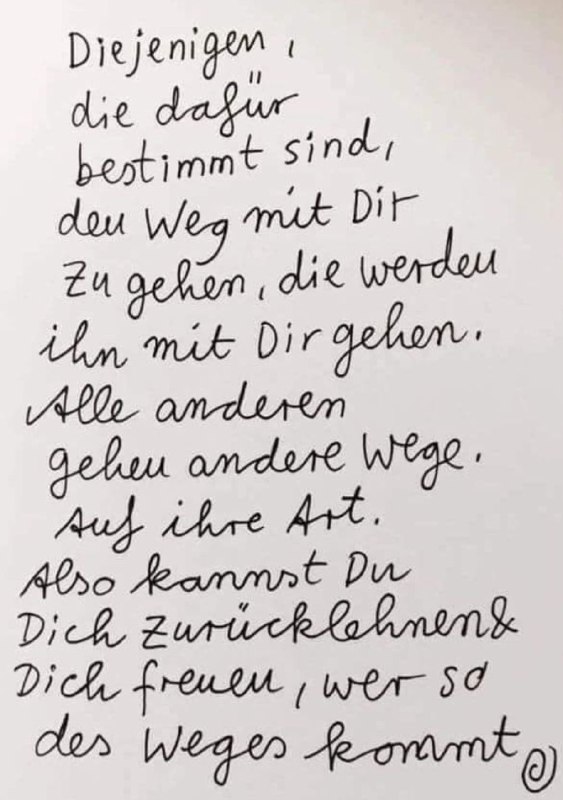 Diejenigen,
die dafür
bestimmt sind,
den Weg mit Dir
zu gehen, die werden
ihn mit Dir gehen.
Alle anderen
gehen andere Wege.
Auf ihre Art.
Also kannst Du
Dich zurücklehnen &
Dich freuen, wer so
des Weges kommt